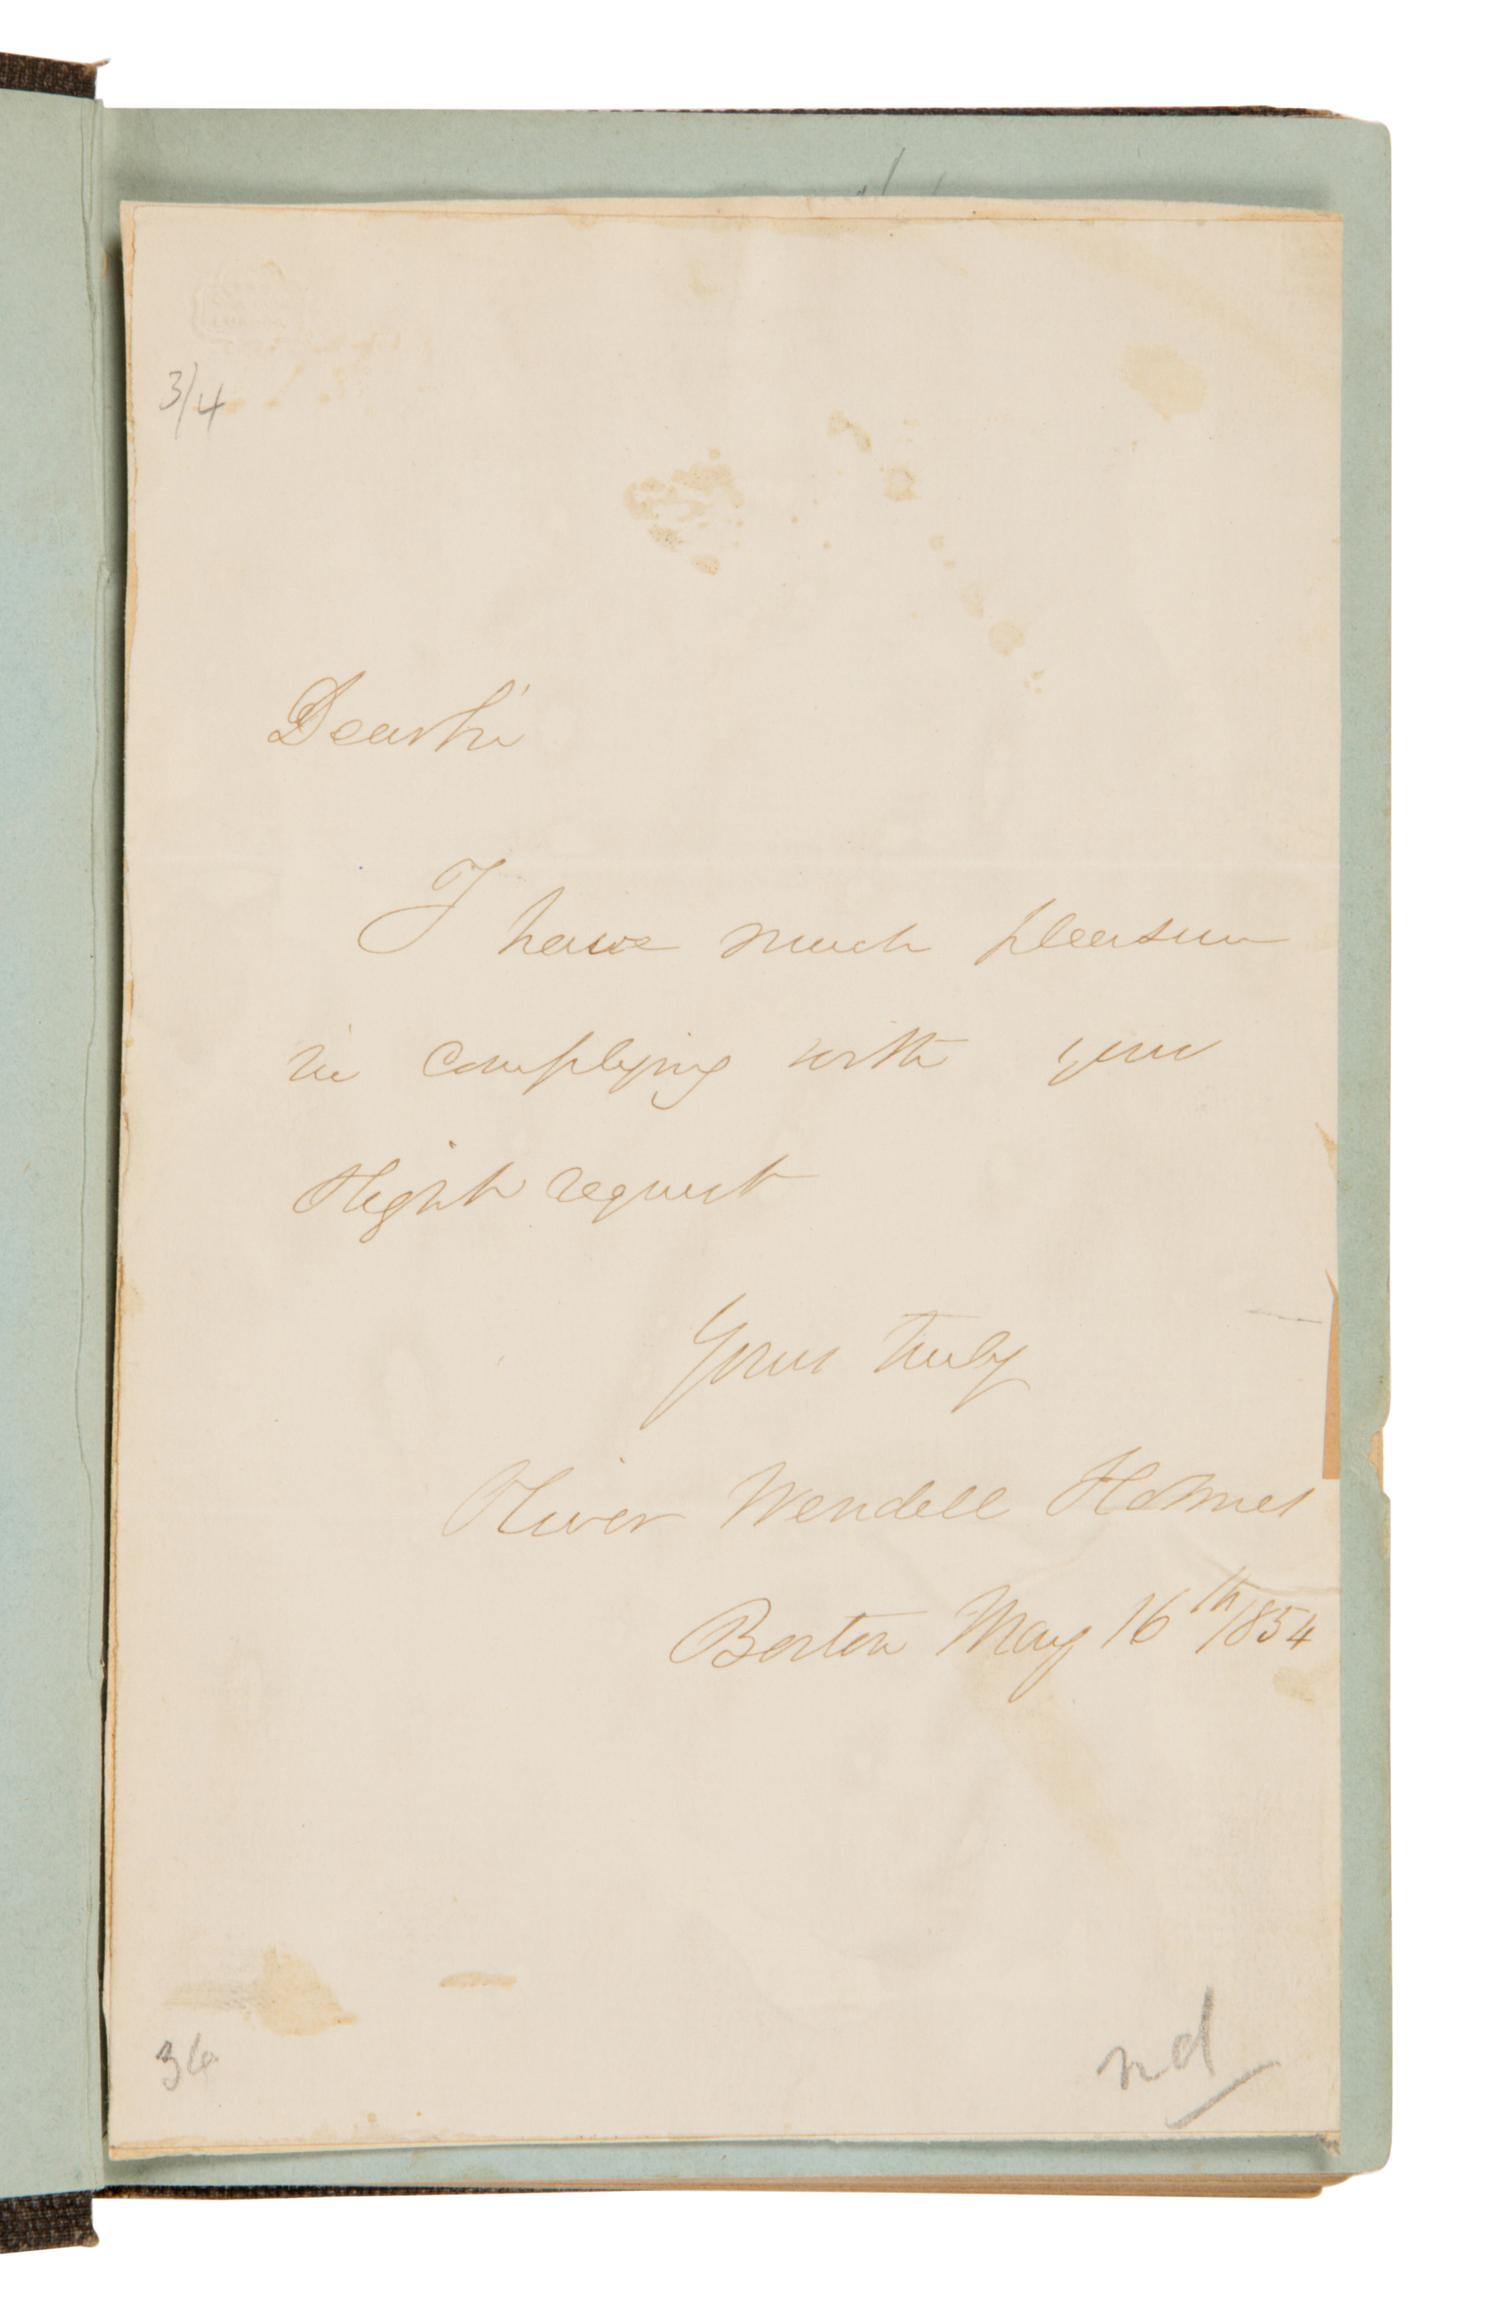 3/4
Dear Sir
I have much pleasure
in complying with your
slight request
Yours truly
Oliver Wendell Holmes
Boston May 16th 1854
36
nd